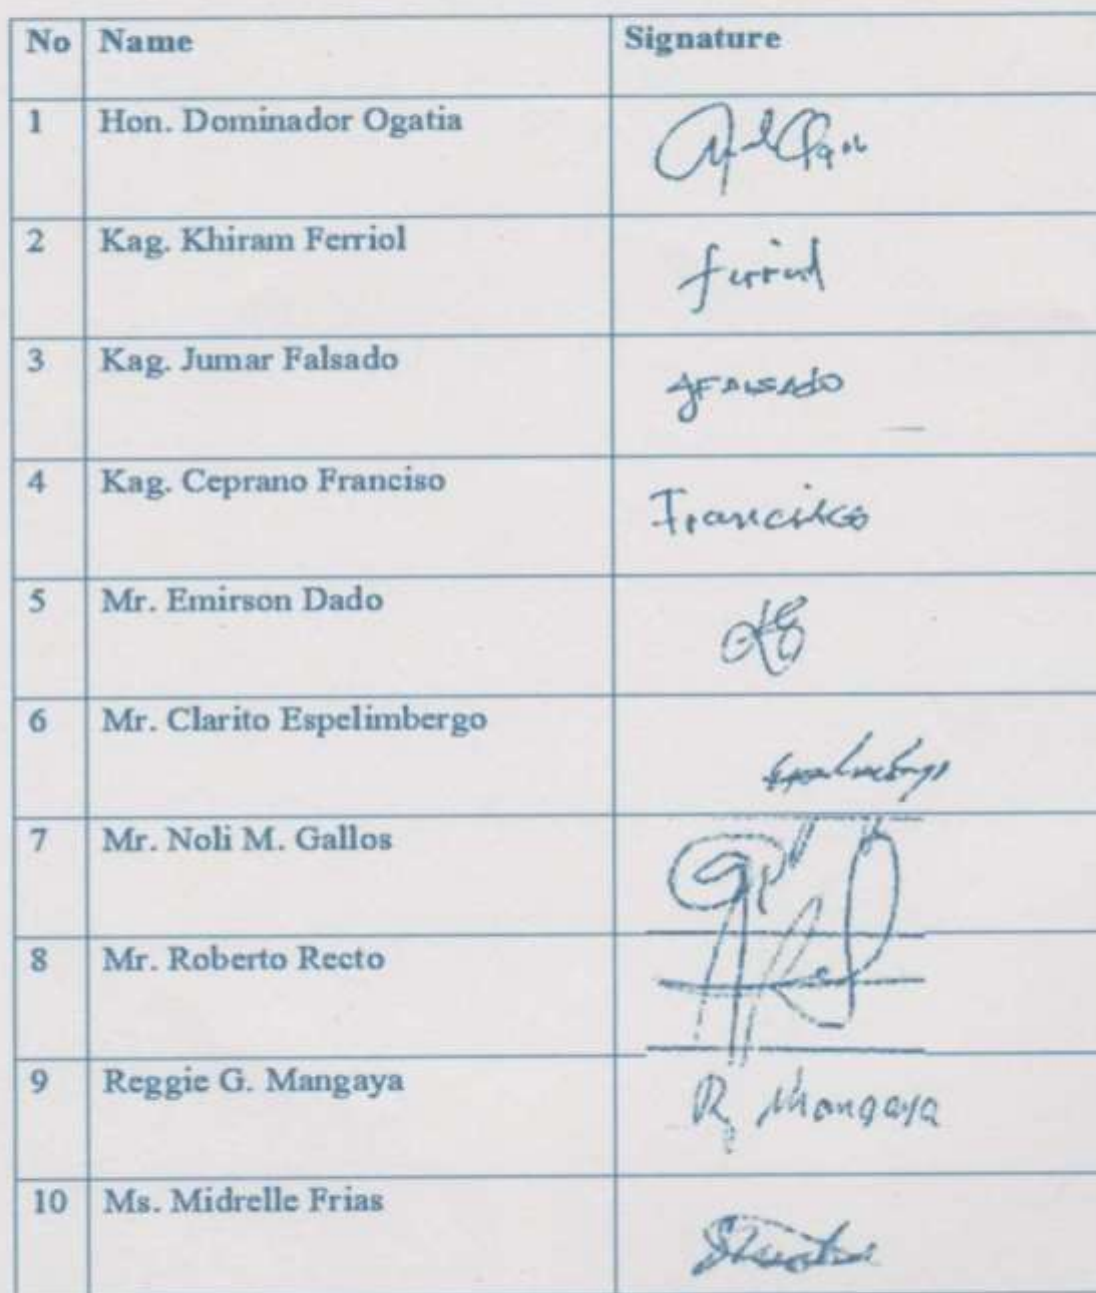 No Name Signature
1 Hon. Dominador Ogatia
2 Kag. Khiram Ferriol ferriol
3 Kag. Jumar Falsado JFALSADO
4 Kag. Ceprano Franciso Francisco
5 Mr. Emirson Dado
6 Mr. Clarito Espelimbergo
7 Mr. Noli M. Gallos
8 Mr. Roberto Recto
9 Reggie G. Mangaya R Mangaya
10 Ms. Midrelle Frias